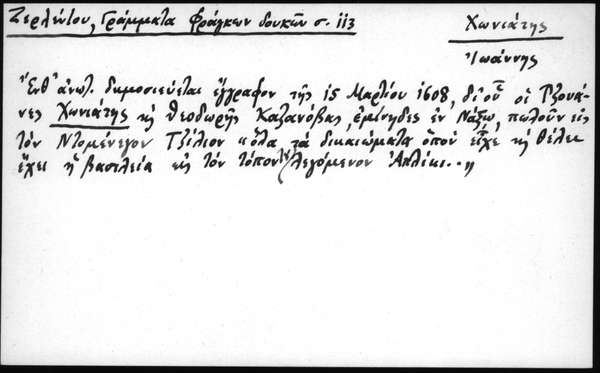 Ζερλέντου, Γράμματα Φράγκων δουκῶν σ. 113
Χωνιάτης
Ἰωάννης
Ἔνθ' ἀνωτ. δημοσιεύεται ἔγγραφον τῆς 15 Μαρτίου 1608, δι' οὗ οἱ Τζουά-
νες Χωνιάτης κ Θεοδωρῆς Καζανόβας, ἐμίνηδες ἐν Νάξῳ, πωλοῦν εἰς
τὸν Ντομένεγον Τζίλιον "ὅλα τὰ δικαιώματα ὁποὺ εἶχε κ θέλει
ἔχει ἡ βασιλεία εἰς τὸν τόπον λεγόμενον Ἀπλίκι.."